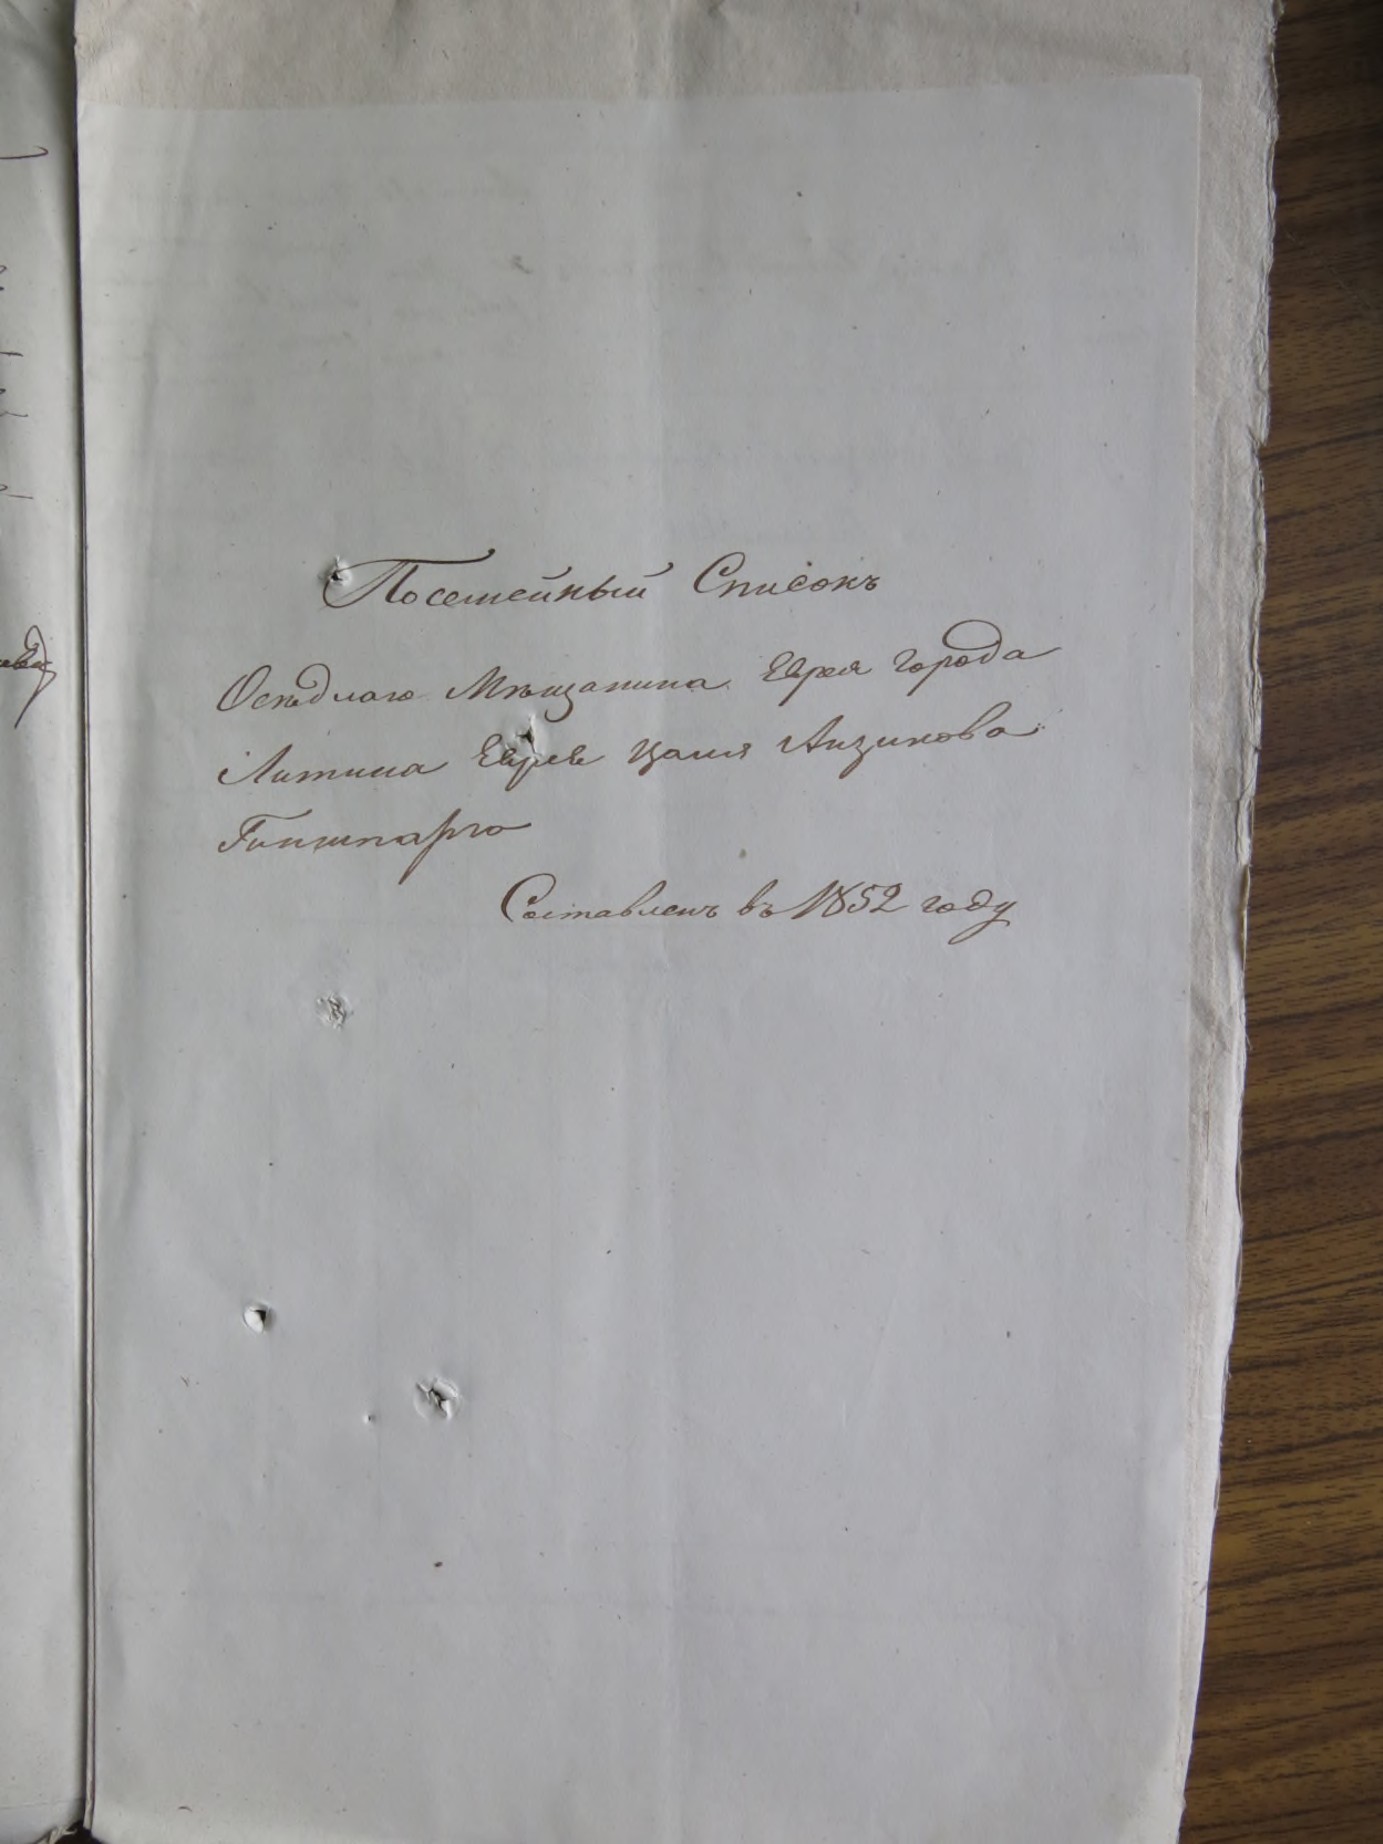 Посемейный Списокъ
Осѣдлаго Мѣщанина Еврея города
Литина Еврея Цаля Аизикова
Гиншпарго
Составленъ въ 1852 году